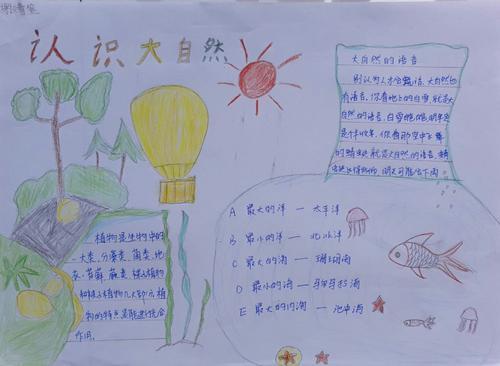 认识大自然
大自然的语言
别认为人才会说话,大自然也
有语言,你看地上的白雪,就是大
自然的语言,白雪
是个丰收年,你看那空中飞舞
的蜻蜓,就是大自然的语言,蜻
蜓 明天可能会下雨
植物是生物中的一
大类,分藻类、菌类、地
衣、苔藓、蕨类、种子植物
植物
物的特点是能进行光合
作用。
A 最大的洋 — 太平洋
B 最小的洋 — 北冰洋
C 最大的海 — 珊瑚海
D 最小的海 — 马尔马拉海
E 最大的内海 — 地中海